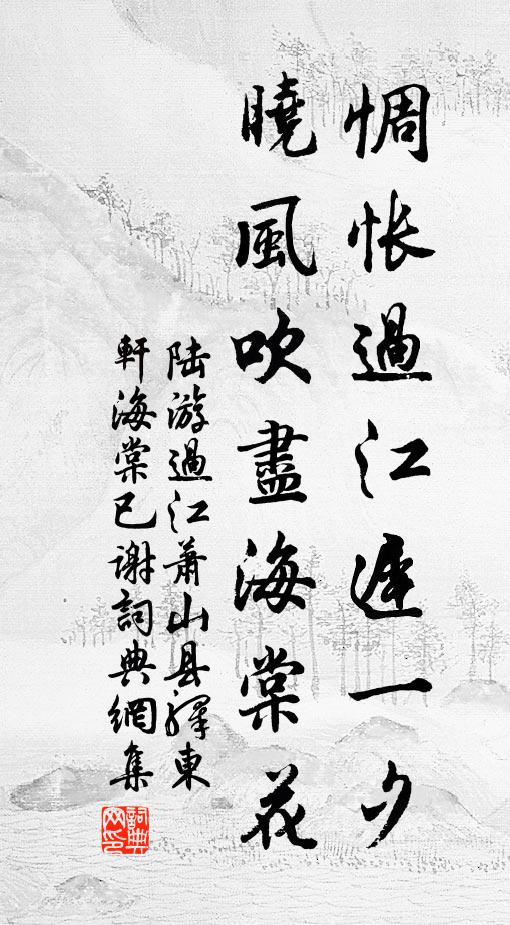 惆怅過江遲一夕
曉風吹盡海棠花
陆游過江萧山县驛東
軒海棠已谢詞典網集
詞典
网印